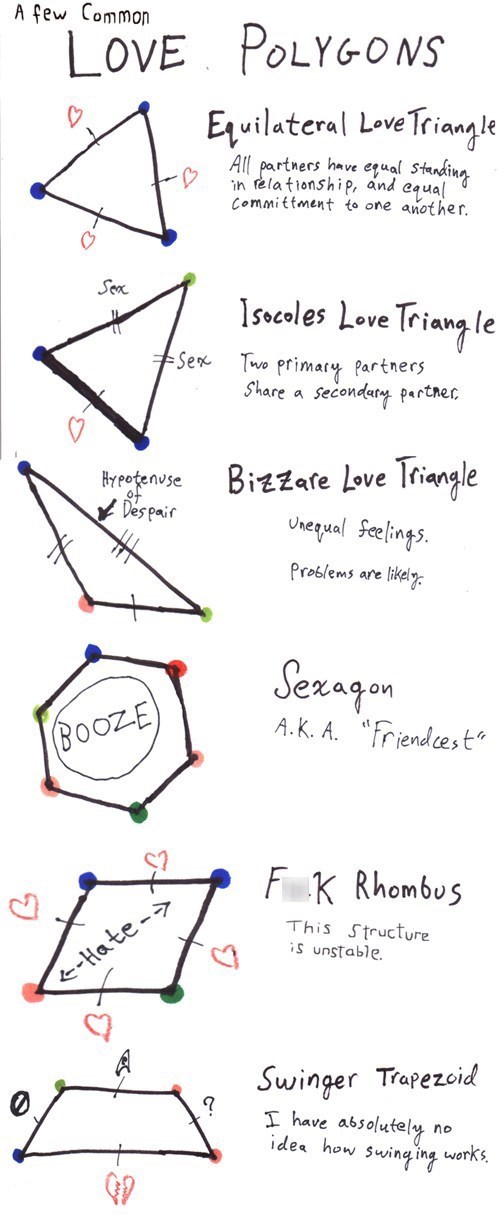 A few Common
LOVE POLYGONS
Equilateral Love Triangle
All partners have equal standing
in relationship, and equal
committment to one another.
Sex
Sex
Isocoles Love Triangle
Two primary partners
Share a secondary partner.
Hypotenuse
of
Despair
Bizzare Love Triangle
Unequal feelings.
Problems are likely.
BOOZE
Sexagon
A.K.A. "Friendcest"
Hate
F K Rhombus
This structure
is unstable.
?
Swinger Trapezoid
I have absolutely no
idea how swinging works.